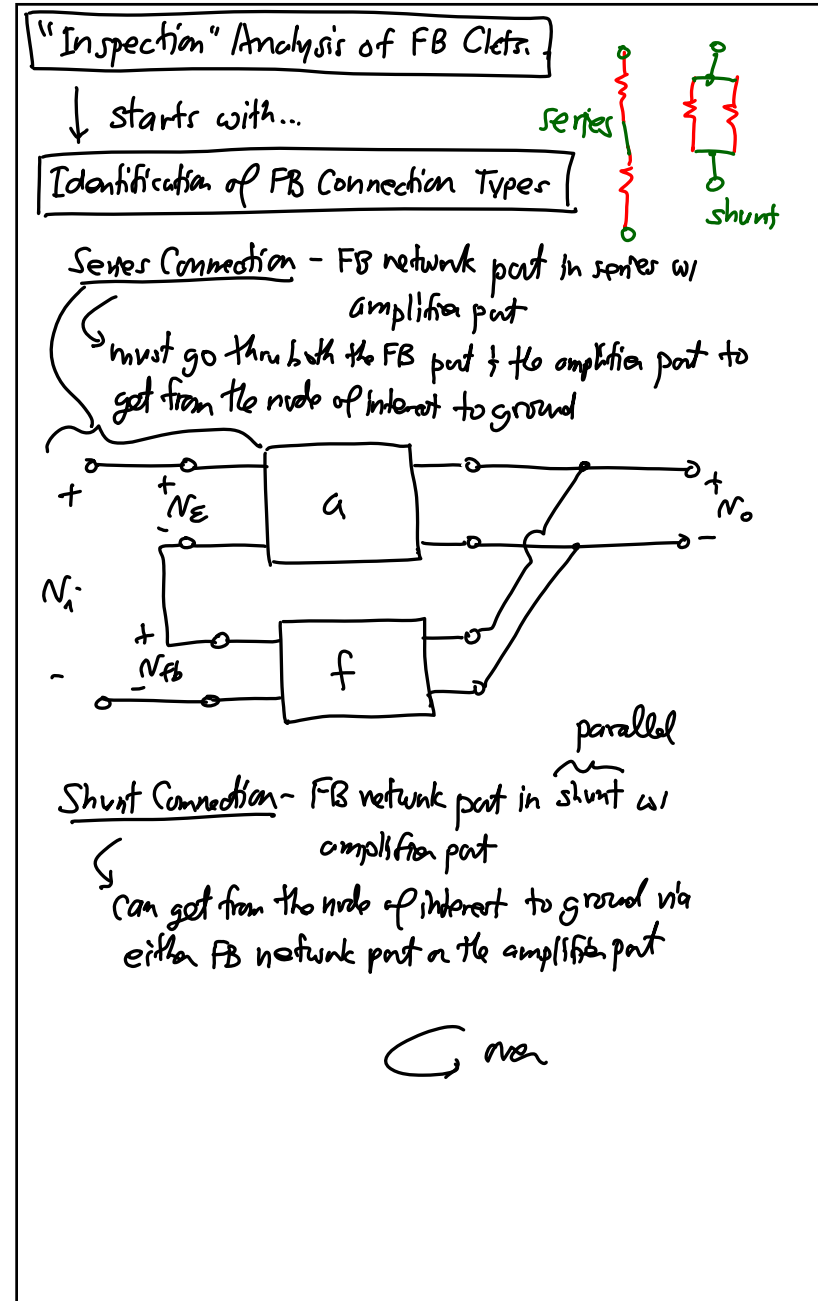 "Inspection" Analysis of FB Ckts.
starts with...
series
shunt
Identification of FB Connection Types
Series Connection - FB network port in series w/
amplifier port
must go thru both the FB port & the amplifier port to
get from the node of interest to ground
+
+
vε
-
a
+
vo
-
vi
-
+
vfb
-
f
parallel
Shunt Connection - FB network port in shunt w/
amplifier port
can get from the node of interest to ground via
either FB network port or the amplifier port
over